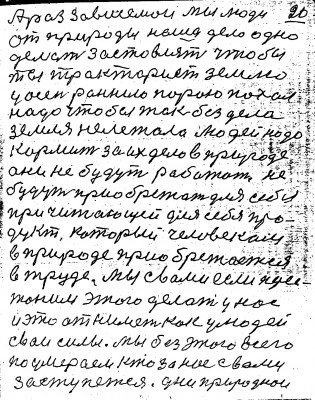 А раз зависемои мы люди 20
от природы наше дело одно
делат заставлят чтобы
ты тракторист землю
уосен раннию порою похал
надо чтобы так без дела
земля нележала людей надо
кормит заих дело в природе
они не будут работат не
будут приобретат для себя
причитающей для себя про-
дукт. который человеком
в природе приобретается
в труде. мы свами если
этого делат унас
и это отнимет как улюдей
сваи силы. мы без этого всего
поумераем кто за нас свами
заступется. они природной